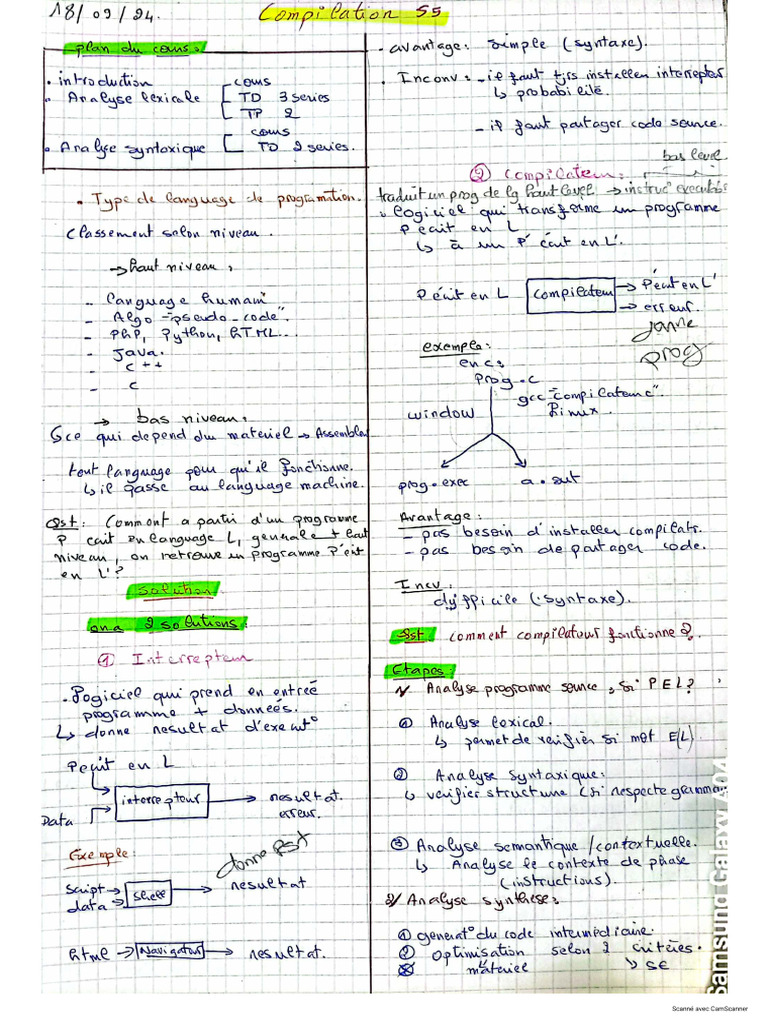 18/09/24.
Compilation S5
plan du cours.
• introduction
cours
• Analyse lexicale
TD 3 series
TP 2
cours
• Analyse syntaxique
TD 2 series.
• Type de language de programation.
Classement selon niveau.
→ haut niveau:
- language humain
- Algo "pseudo-code"
- PhP, Python, HTML...
- Java.
- C++
- C
→ bas niveau:
Gce qui depend du materiel → Assembleur
tout language pour qu'il fonctionne.
↳ il passe au language machine.
Qst: Comment a partir d'un programme
P écrit en language L, generale + haut
niveau, on retrouve un programme P' écrit
en L'?
Solution
on a 2 solutions:
① Interrepteur
• logiciel qui prend en entreé
programme + données.
↳ donne resultat d'execut°
P écrit en L
interrepteur → resultat.
Data
erreur.
Exemple:
donne Rst
script → Shell → resultat
data →
html → Navigateur → resultat.
• avantage: simple (syntaxe).
• Inconv: - il faut tjrs installer interrepter
↳ probabilité.
- il faut partager code source.
bas level
② Compilateur:
traduit un prog de lg haut level → instruc° executables
• logiciel qui transforme un programme
P écrit en L
↳ à un P' écrit en L'.
P écrit en L → Compilateur → P' écrit en L'
→ erreur.
donne
prog
exemple:
en c:
prog.c
gcc "compilateur c"
window
linux.
prog.exec
a.out
Avantage:
- pas besoin d'installer compilatr.
- pas besoin de partager code.
Incv:
dyfficile (syntaxe).
Qst: comment compilateur fonctionne?
Etapes:
1/ Analyse programme source, si P E L?
① Analyse lexical.
↳ permet de verifier si mot E(L)
② Analyse syntaxique:
↳ verifier structure (si respecte grammaire
③ Analyse semantique / contextuelle.
↳ Analyse le contexte de phase
(instructions).
2/ Analyse synthèse:
① generat° du code intermédiaire.
② optimisation selon 2 critères.
materiel
↘ SE
Samsung Galaxy A04
Scanné avec CamScanner